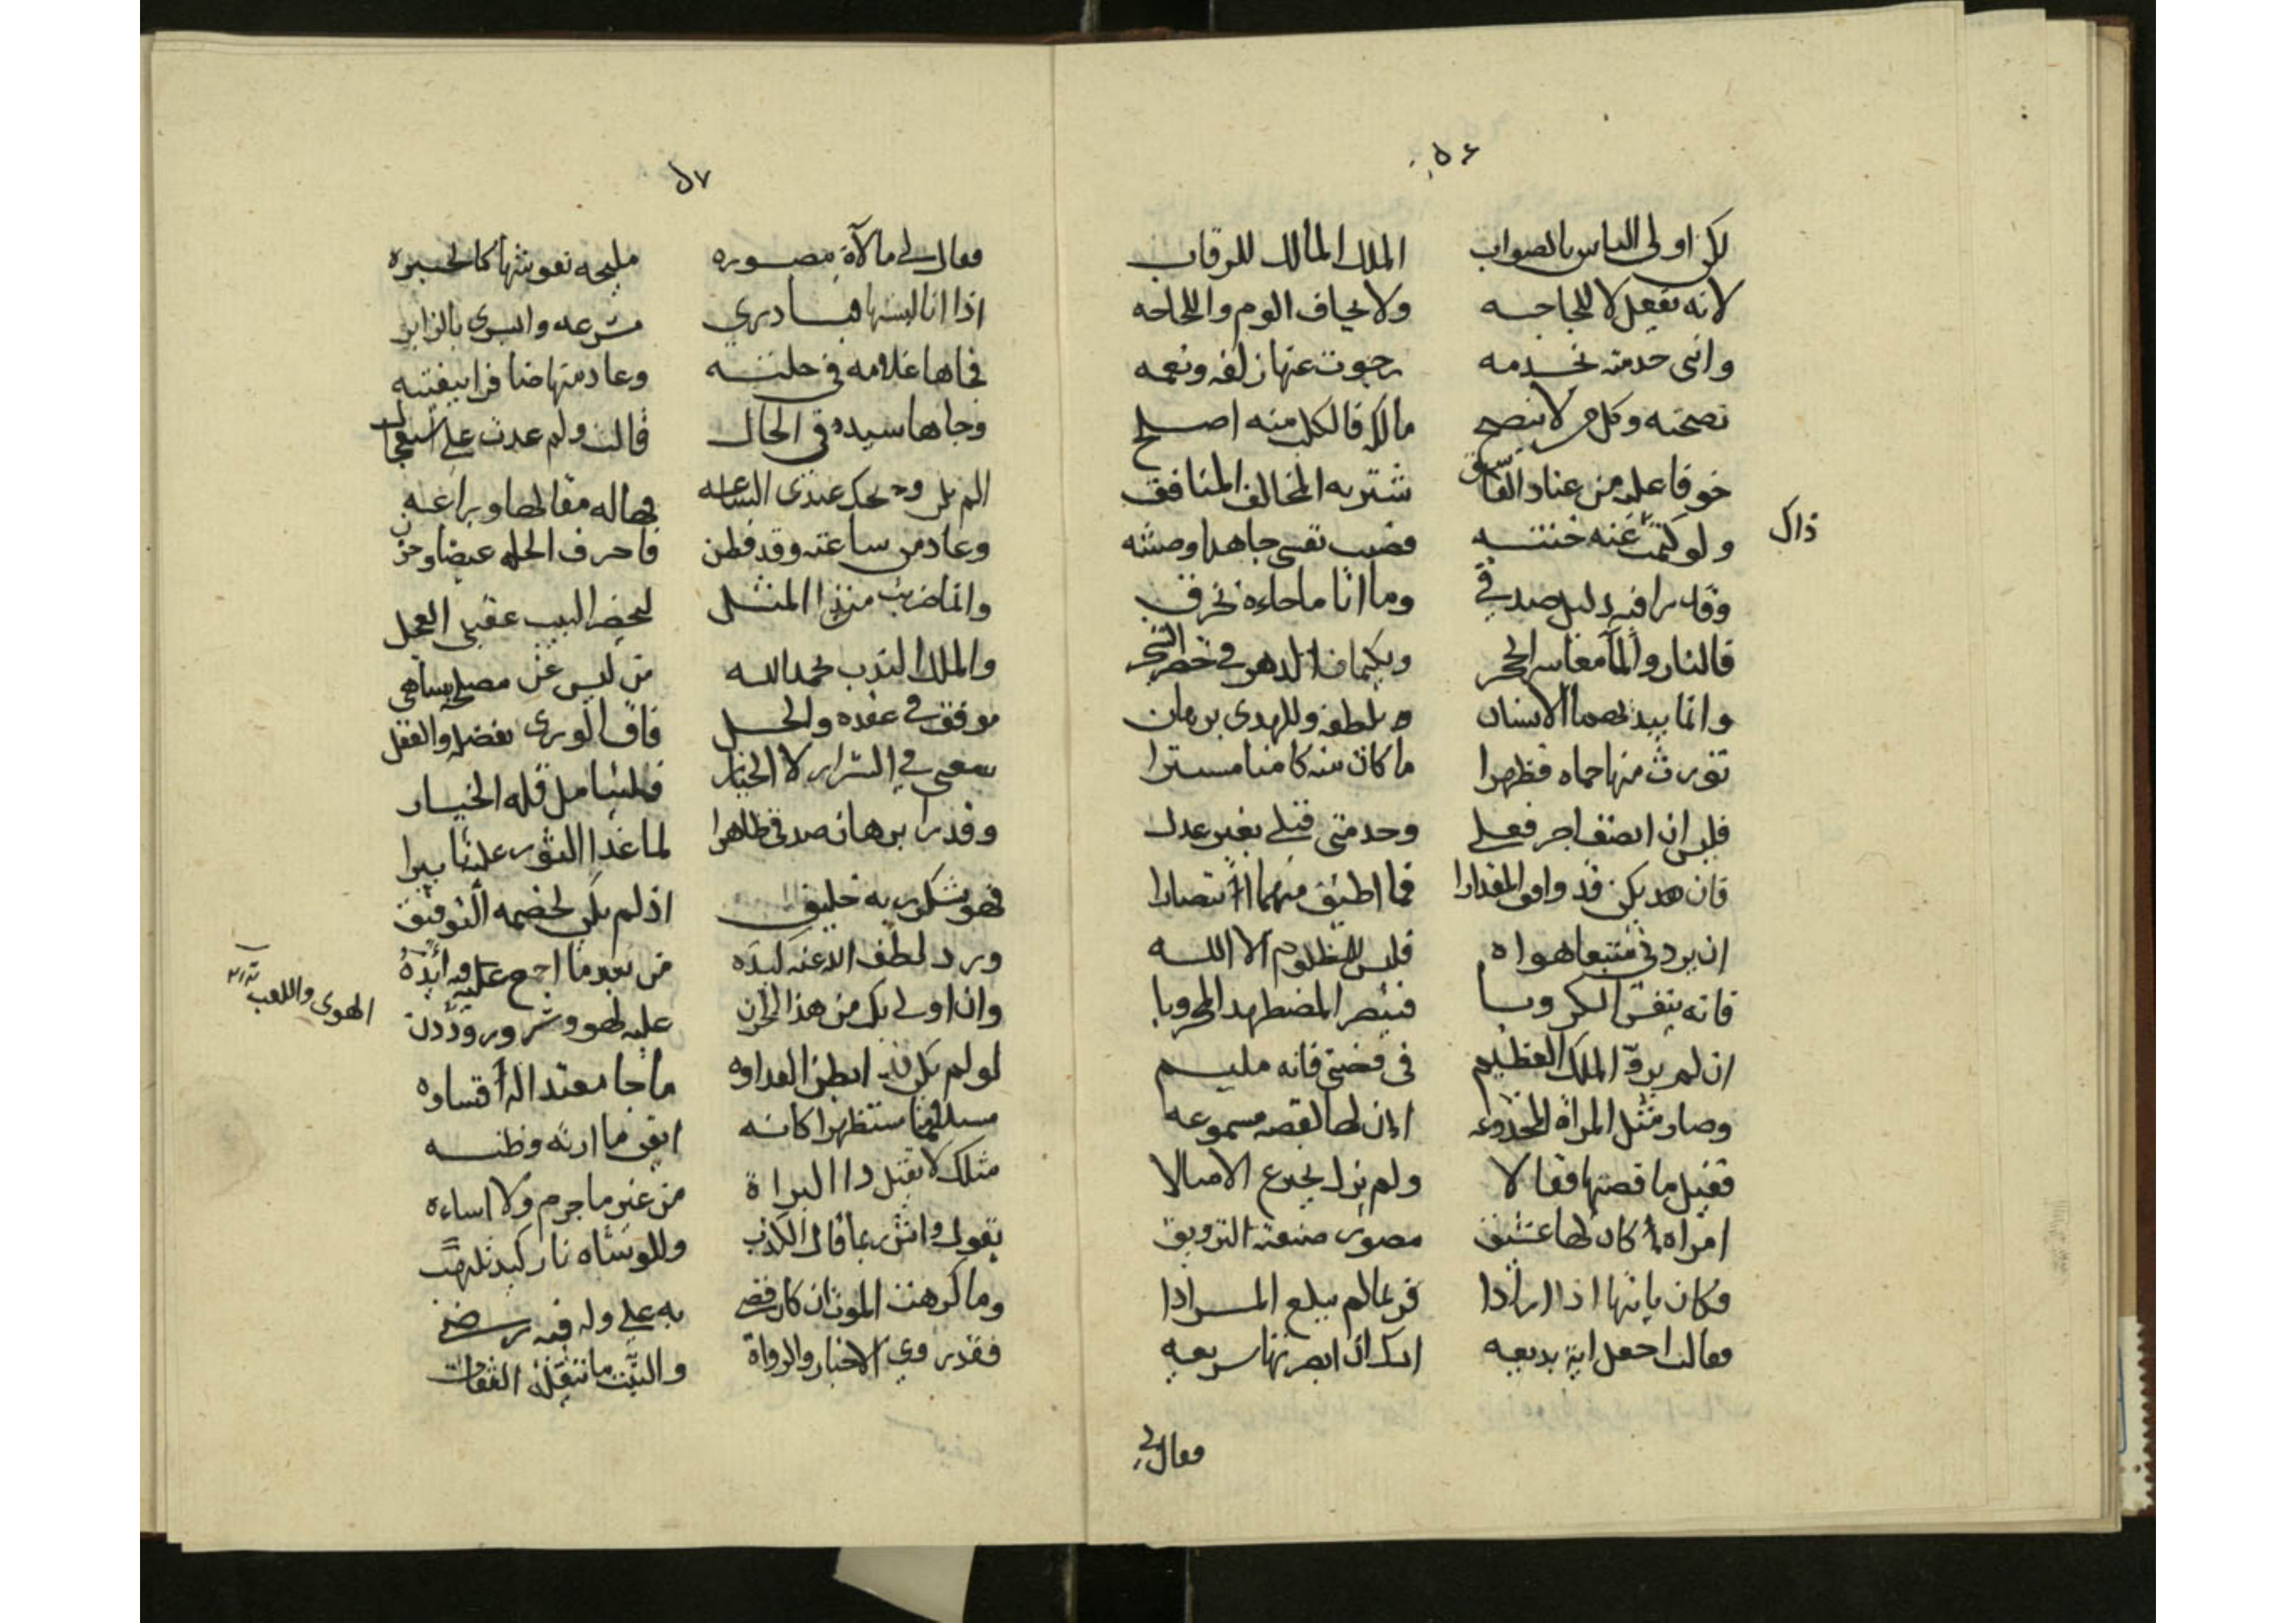 ٥٦
لكن اولى الناس بالصواب الملك المالك للرقاب
لانه يفعل لا للحاجه ولا يخاف اللوم واللجاجه
وانني خدمته بخدمه رجوت عنها زلفه ونعمه
نصحته وكل من لا ينصح مالكه فالكلب منه اصلح
خوفا عليه من عناد الفاسق شتربه المخالف المنافق
ولو كتمت عنه خنته فضب نفسي جاهدا وصنته
ذاك
وقد رأ فيه دليل صدقي وما انا ما جاءه تخرقي
فالنار والمآ معا سر الحجر ويكتمان الدهر في خصر الشجر
وانما يبديهما الانسان بلطفه وللهدى برهان
تورث منها حماه فظهرا ما كان منه كامنا مسترا
فليس ان انصف اجر فعلي وخدمتي قتلي بغير عدل
فان يكن قد وافق المقدارا فما اطيق منهما انتصارا
ان يردني متبعا هواه فليس للمظلوم الا الله
فانه ينفس الكروبا فينصر المضطهد المحروبا
ان لم يرو الملك العظيم في قصتي فانه مليم
وصار مثل المراة المخدوعه اذن لها لقصه مسموعه
فقيل ما قصتها فقالا ولم يزل يخترع الامثالا
امراه كان لها عشيق مصور صنعته التزويق
فكان ياتيها اذا ارادا فربما لم يبلغ المرادا
فقالت احعل اية بديعه اليك ان ابصرتها سريعه
فقال لي
٥٧
فقال لي ملآة مصوره مليحه نقوشها كالحبره
اذا انا لبستها فبادري مسرعه وابشري بالزاير
فجاها غلامه في حلته وعاد منها ظافرا ببغيته
وجاها سيده في الحال قالت ولم عدت على استعجال
الم تكن ويحك عندي الساعه فهاله مقالها وراعه
وعاد من ساعته وقد فطن فاحرق الحله غيضا وحزن
وانما ضربت هذا المثل ليحضر اللبيب عقبى العجل
والملك الندب بحمد الله من ليس عن مصلحه بساهي
موفق في عقده والحل فاق الورى بفضله والعقل
سعى في الشرار لا الخيار فليتامل قله الخيار
وقد رأ برهان صدقي ظاهرا لما غدا الثور علينا بيرا
فهو بشكر ربه خليق اذ لم يكن لخصمه التوفيق
ورد لطف الله عنه كيده من بعد ما اجمع عليه ايده
وان اولى بك من هذا الحزن عليه لهو وسرور وددن
الهوى واللعب
لو لم يكن قد ابطن العداوه ما جا معتدا الى قساوه
مستلئما مستظهرا كانه ايقن ما اريته وظنه
مثلك لا يقتل ذا البراة من غير ما جرم ولا اساءه
يقول واش ربما قال الكذب وللوشاه نار كيد تلتهب
وما كرهت الموت ان كان قضي به علي وله فيه رضي
فقد روي الاخبار والرواة والثبت ما تنقله الثقات